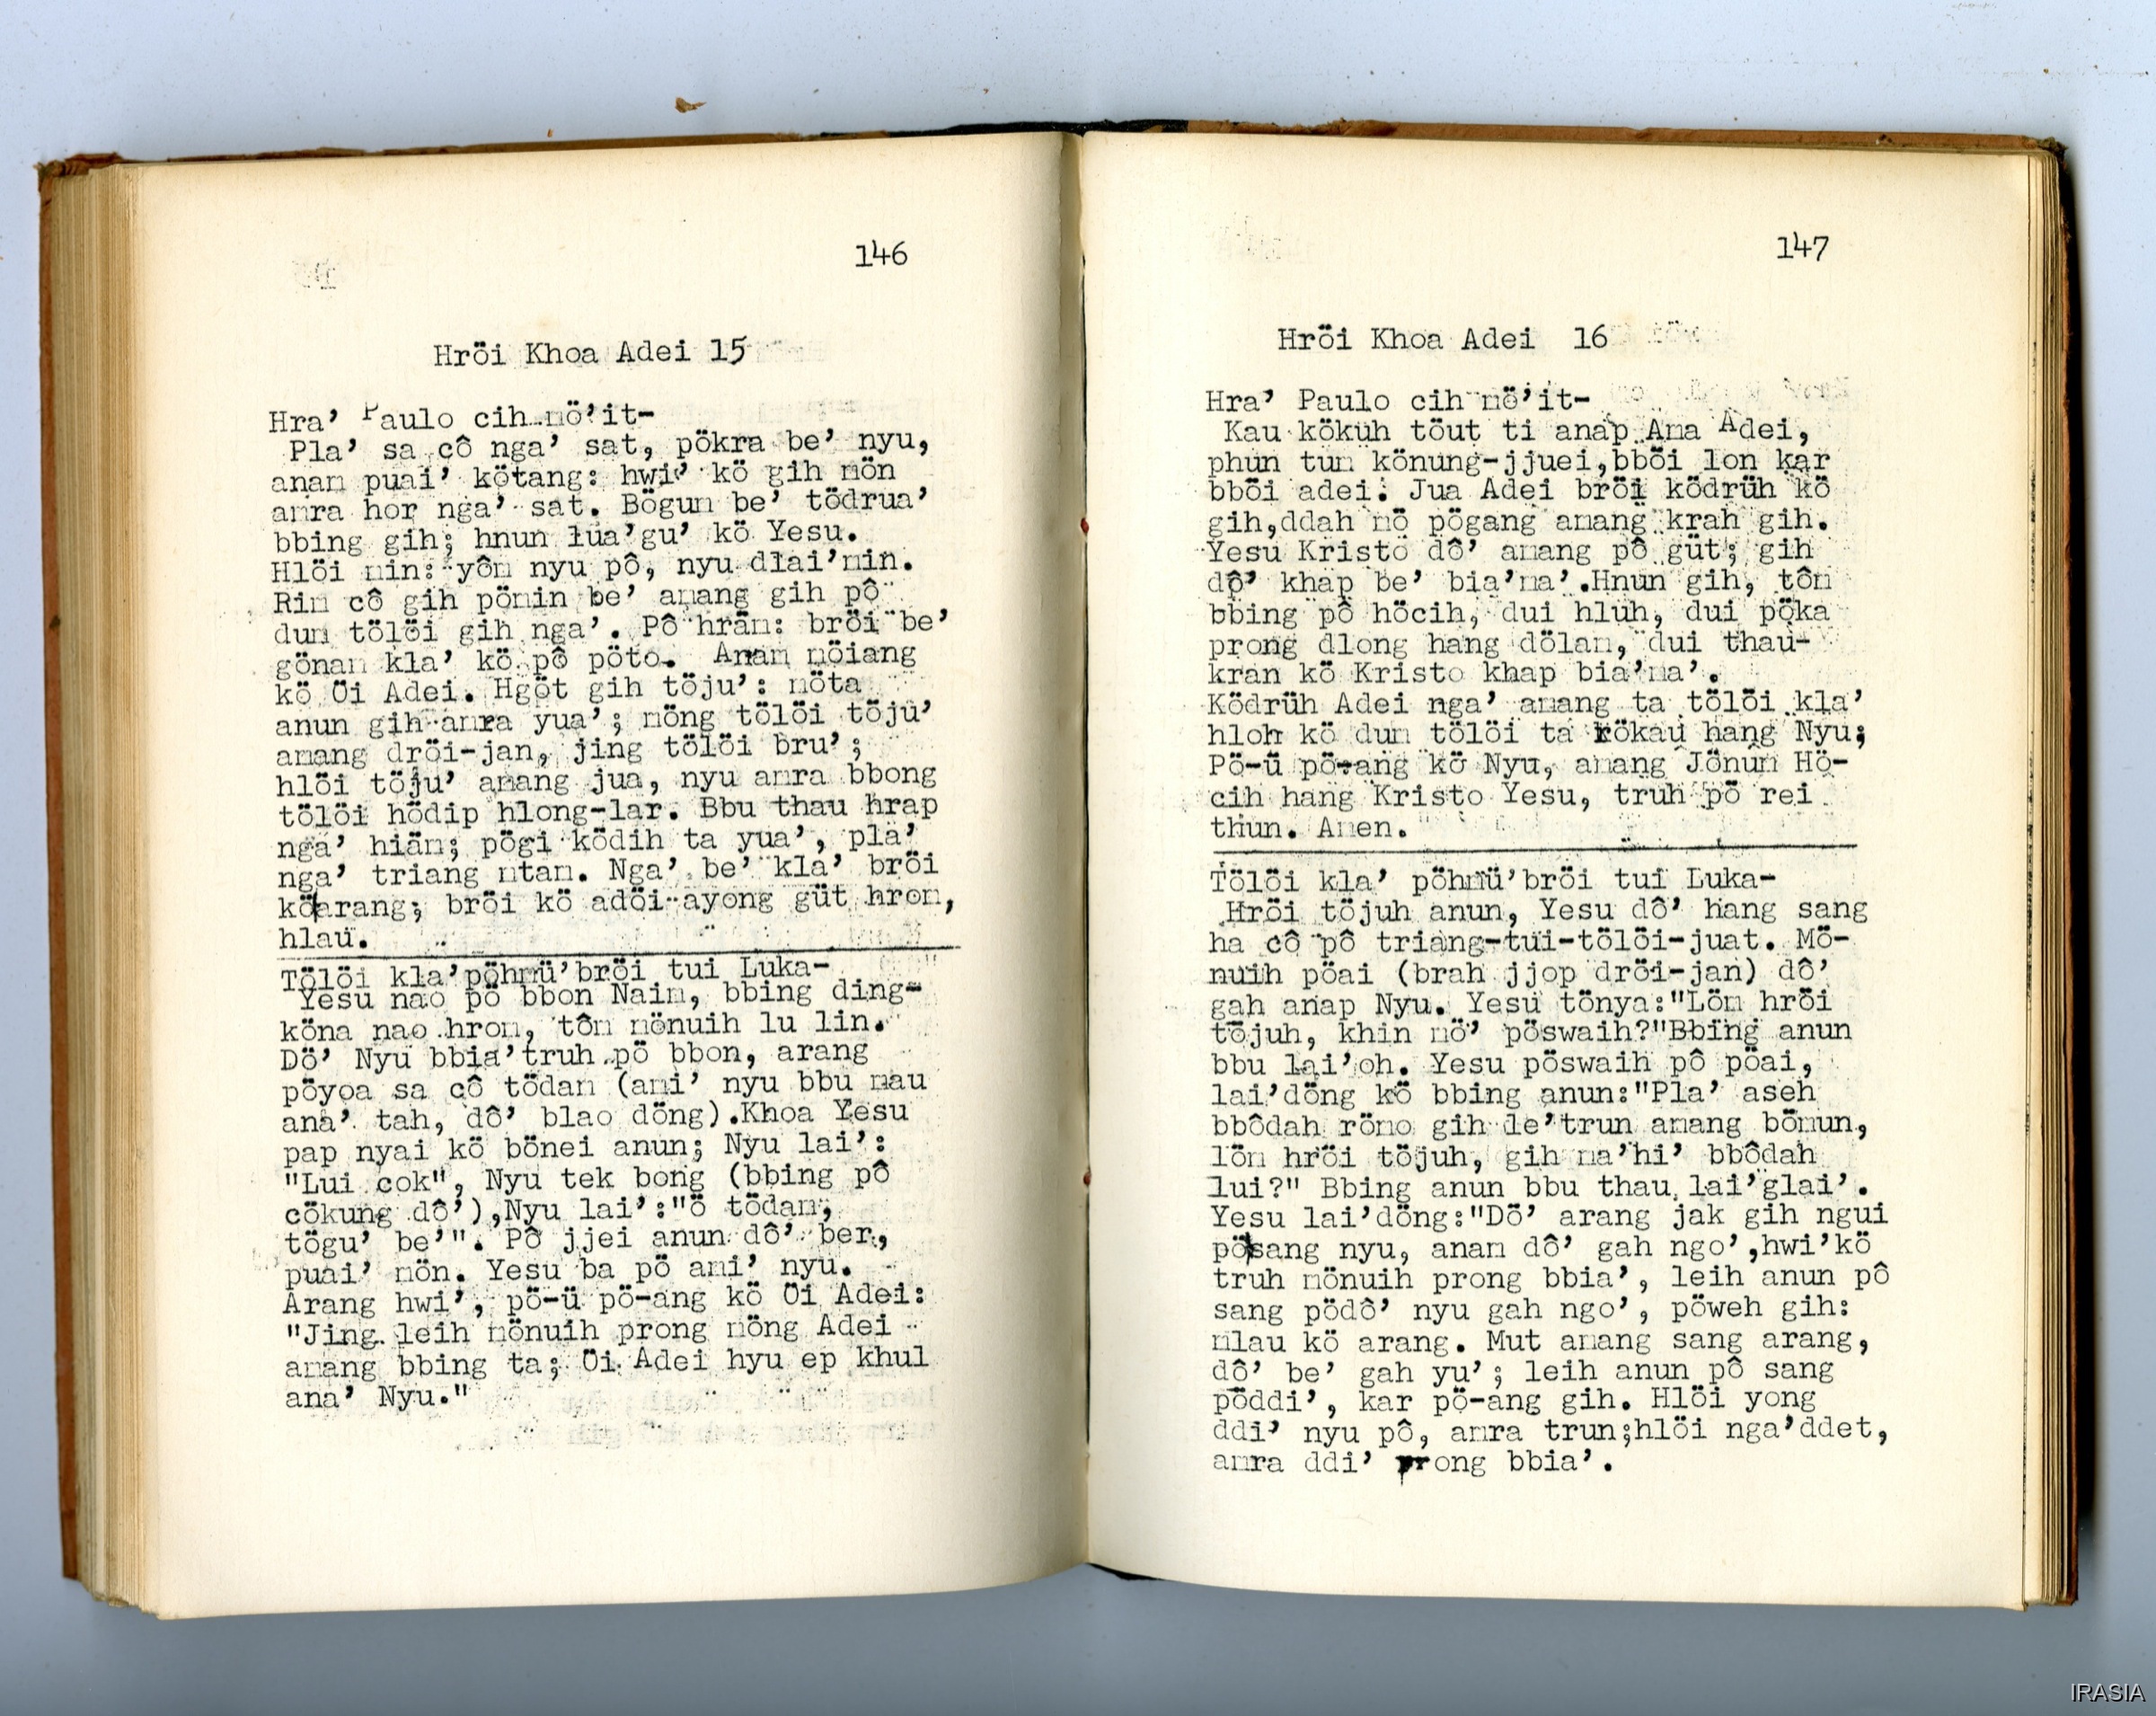 146
Hröi Khoa Adei 15
Hra’ Paulo cih mö’it-
Pla’ sa cô nga’ sat, pökra be’ nyu,
anam puai’ kötang: hwi’ kö gih mön
amra hor nga’ sat. Bögum be’ tödrua’
bbing gih; hnun lua’gu’ kö Yesu.
Hlöi min: yôm nyu pô, nyu dlai’min.
Rim cô gih pömin be’ amang gih pô
dum tölöi gih nga’. Pô hräm: bröi be’
gönam kla’ kö pô pöto. Anam möiang
kö Öi Adei. Hgöt gih töju’: möta
anun gih amra yua’; möng tölöi töju’
amang dröi-jan, jing tölöi bru’;
hlöi töju’ amang jua, nyu amra bbong
tölöi hödip hlong-lar. Bbu thau hrap
nga’ hiäm; pögi ködih ta yua’, pla’
nga’ triang mtam. Nga’ be’ kla’ bröi
kö arang; bröi kö adöi-ayong güt hrom,
hlau.
Tölöi kla’pöhmü’bröi tui Luka-
Yesu nao pö bbon Naim, bbing ding-
köna nao hrom, tôm mönuih lu lin.
Dö’ Nyu bbia’truh pö bbon, arang
pöyoa sa cô tödam (ami’ nyu bbu mau
ana’ tah, dô’ blao döng).Khoa Yesu
pap nyai kö bönei anun; Nyu lai’:
"Lui cok", Nyu tek bong (bbing pô
cökung dô’),Nyu lai’:"ö tödam,
tögu’ be’". Pô jjei anun dô’ ber,
puai’ mön. Yesu ba pö ami’ nyu.
Arang hwi’, pö-ü pö-ang kö Öi Adei:
"Jing leih mönuih prong möng Adei
amang bbing ta; Öi Adei hyu ep khul
ana’ Nyu."
147
Hröi Khoa Adei 16
Hra’ Paulo cih mö’it-
Kau köküh töut ti anap Ama Adei,
phun tum könung-jjuei,bböi lon kar
bböi adei: Jua Adei bröi ködrüh kö
gih,ddah mö pögang amang krah gih.
Yesu Kristo dô’ amang pô güt; gih
dô’ khap be’ bia’ma’.Hnun gih, tôm
bbing pô höcih, dui hluh, dui pöka
prong dlong hang dölam, dui thau-
kran kö Kristo khap bia’ma’.
Ködrüh Adei nga’ amang ta tölöi kla’
hloh kö dum tölöi ta rökau hang Nyu;
Pö-ü pö-ang kö Nyu, amang Jönum Hö-
cih hang Kristo Yesu, truh pö rei
thun. Amen.
Tölöi kla’ pöhmü’bröi tui Luka-
Hröi töjuh anun, Yesu dô’ hang sang
ha cô pô triang-tui-tölöi-juat. Mö-
nuih pöai (brah jjop dröi-jan) dô’
gah anap Nyu. Yesu tönya:"Löm hröi
töjuh, khin mö’ pöswaih?"Bbing anun
bbu lai’oh. Yesu pöswaih pô pöai,
lai’döng kö bbing anun:"Pla’ aseh
bbôdah römo gih le’trun amang bömun,
löm hröi töjuh, gih ma’hi’ bbôdah
lui?" Bbing anun bbu thau lai’glai’.
Yesu lai’döng:"Dö’ arang jak gih ngui
pösang nyu, anam dô’ gah ngo’,hwi’kö
truh mönuih prong bbia’, leih anun pô
sang pödô’ nyu gah ngo’, pöweh gih:
mlau kö arang. Mut amang sang arang,
dô’ be’ gah yu’; leih anun pô sang
pöddi’, kar pö-ang gih. Hlöi yong
ddi’ nyu pô, amra trun;hlöi nga’ddet,
amra ddi’ prong bbia’.
IRASIA